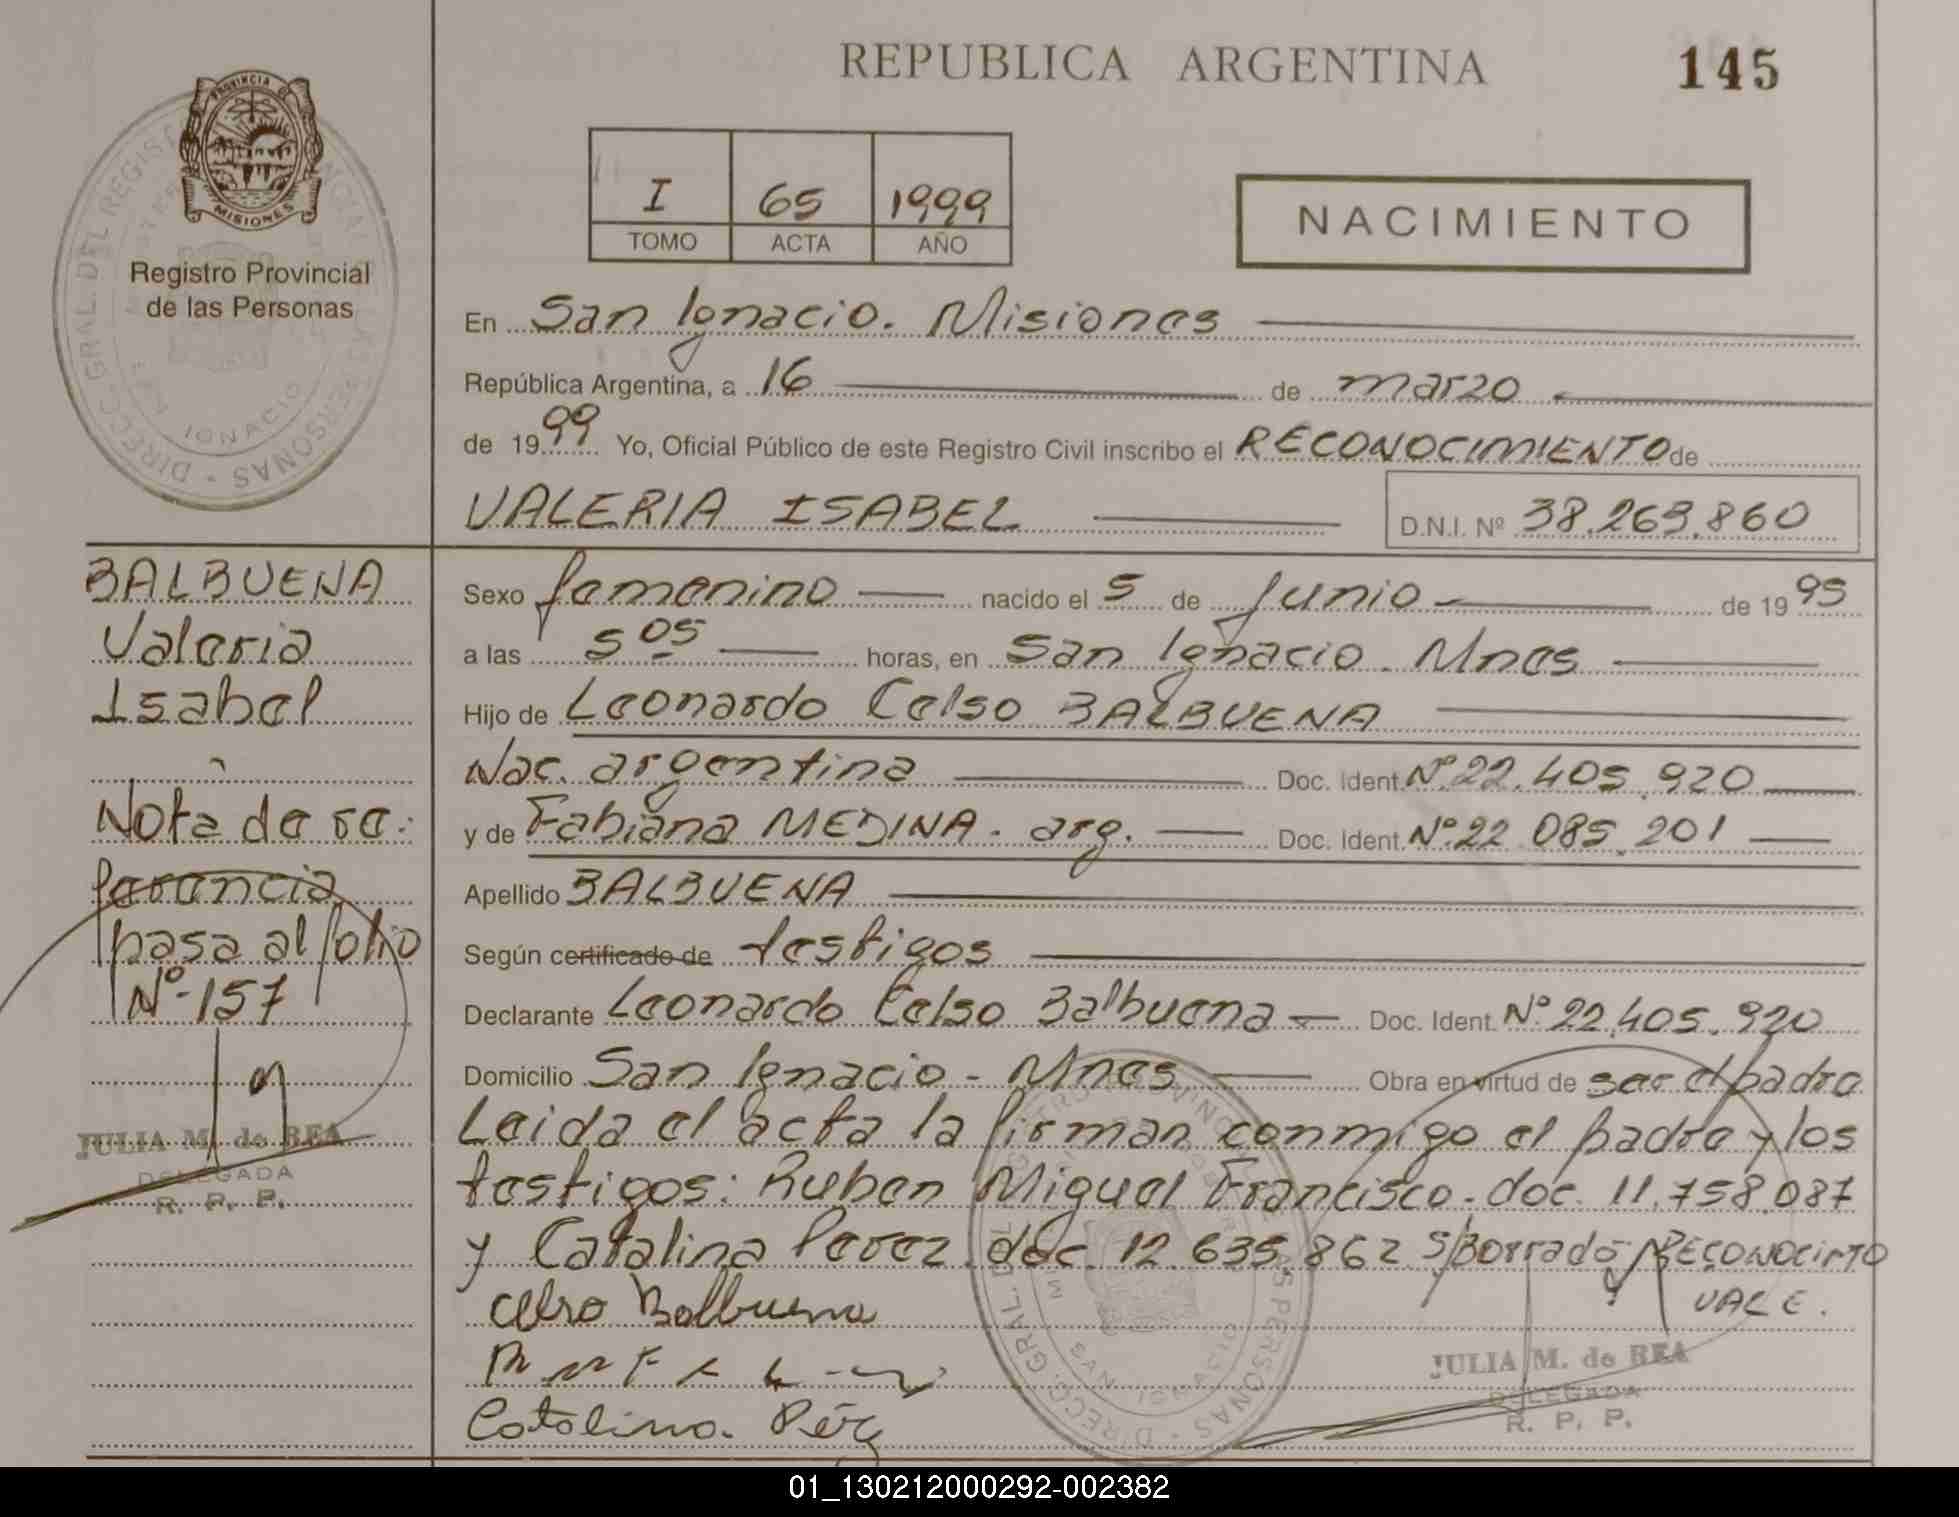 REPUBLICA ARGENTINA
145
PROVINCIA DE
MISIONES
Registro Provincial
de las Personas
I 65 1999
TOMO ACTA AÑO
NACIMIENTO
En San Ignacio. Misiones
República Argentina, a 16 de marzo
de 1999 Yo, Oficial Público de este Registro Civil inscribo el RECONOCIMIENTO de
VALERIA ISABEL D.N.I. Nº 38.263.860
BALBUENA
Valeria
Isabel
Nota de re-
ferencia
pasa al folio
Nº-157
JULIA M. de REA
DELEGADA
R. P. P.
Sexo femenino nacido el 5 de Junio de 1995
a las 5 05 horas, en San Ignacio. Mnes
Hijo de Leonardo Celso BALBUENA
Nac. argentina Doc. Ident. Nº 22.405.920
y de Fabiana MEDINA. arg. Doc. Ident. Nº 22 085.201
Apellido BALBUENA
Según certificado de testigos
Declarante Leonardo Celso Balbuena Doc. Ident. Nº 22.405.920
Domicilio San Ignacio - Mnes Obra en virtud de ser el padre
Leida el acta la firman conmigo el padre y los
testigos: Ruben Miguel Francisco. doc. 11.758.087
y Catalina Perez. doc. 12.635.862 S/Borrado RECONOCIMTO
VALE.
Celso Balbuena
Catalina. Pérez
JULIA M. de REA
DELEGADA
R. P. P.
01_130212000292-002382